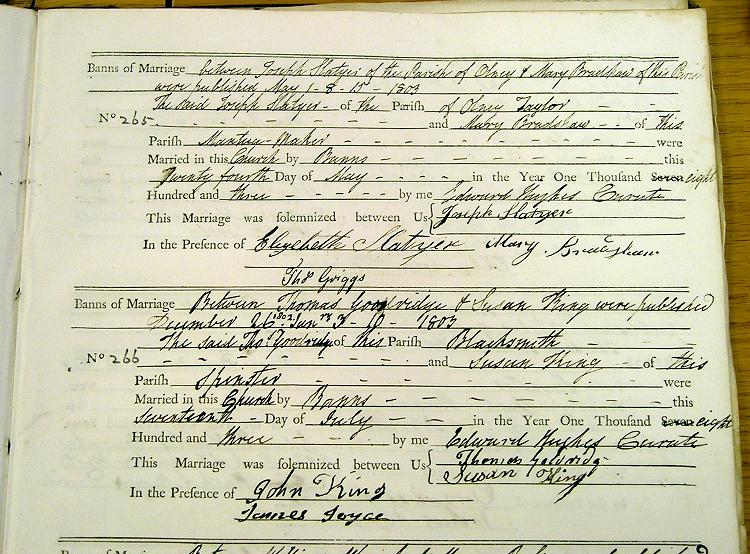 Banns of Marriage between Joseph Slatyer of the Parish of Olney & Mary Bradshaw of this Parish
were published May 1 - 8 - 15 - 1803
The said Joseph Slatyer - of the Parish of Olney Taylor
No 265. and Mary Bradshaw - - of this
Parish Mantua-Maker were
Married in this Church by Banns this
Twenty fourth Day of May in the Year One Thousand Seven eight
Hundred and three by me Edward Hughes Curate
This Marriage was solemnized between Us Joseph Slatyer
In the Presence of Elizebeth Slatyer Mary Bradshaw
Thos Griggs
Banns of Marriage Between Thomas Goodridge & Susan King were published
December 26 1802 Janry 3 - 10 - 1803
The said Thos Goodridge of this Parish Blacksmith
No 266 and Susan King - of this
Parish Spinster were
Married in this Church by Banns this
Seventeenth - Day of July in the Year One Thousand Seven eight
Hundred and three by me Edward Hughes Curate
This Marriage was solemnized between Us Thomas Goldridg
Susan King
In the Presence of John King
James Joyce